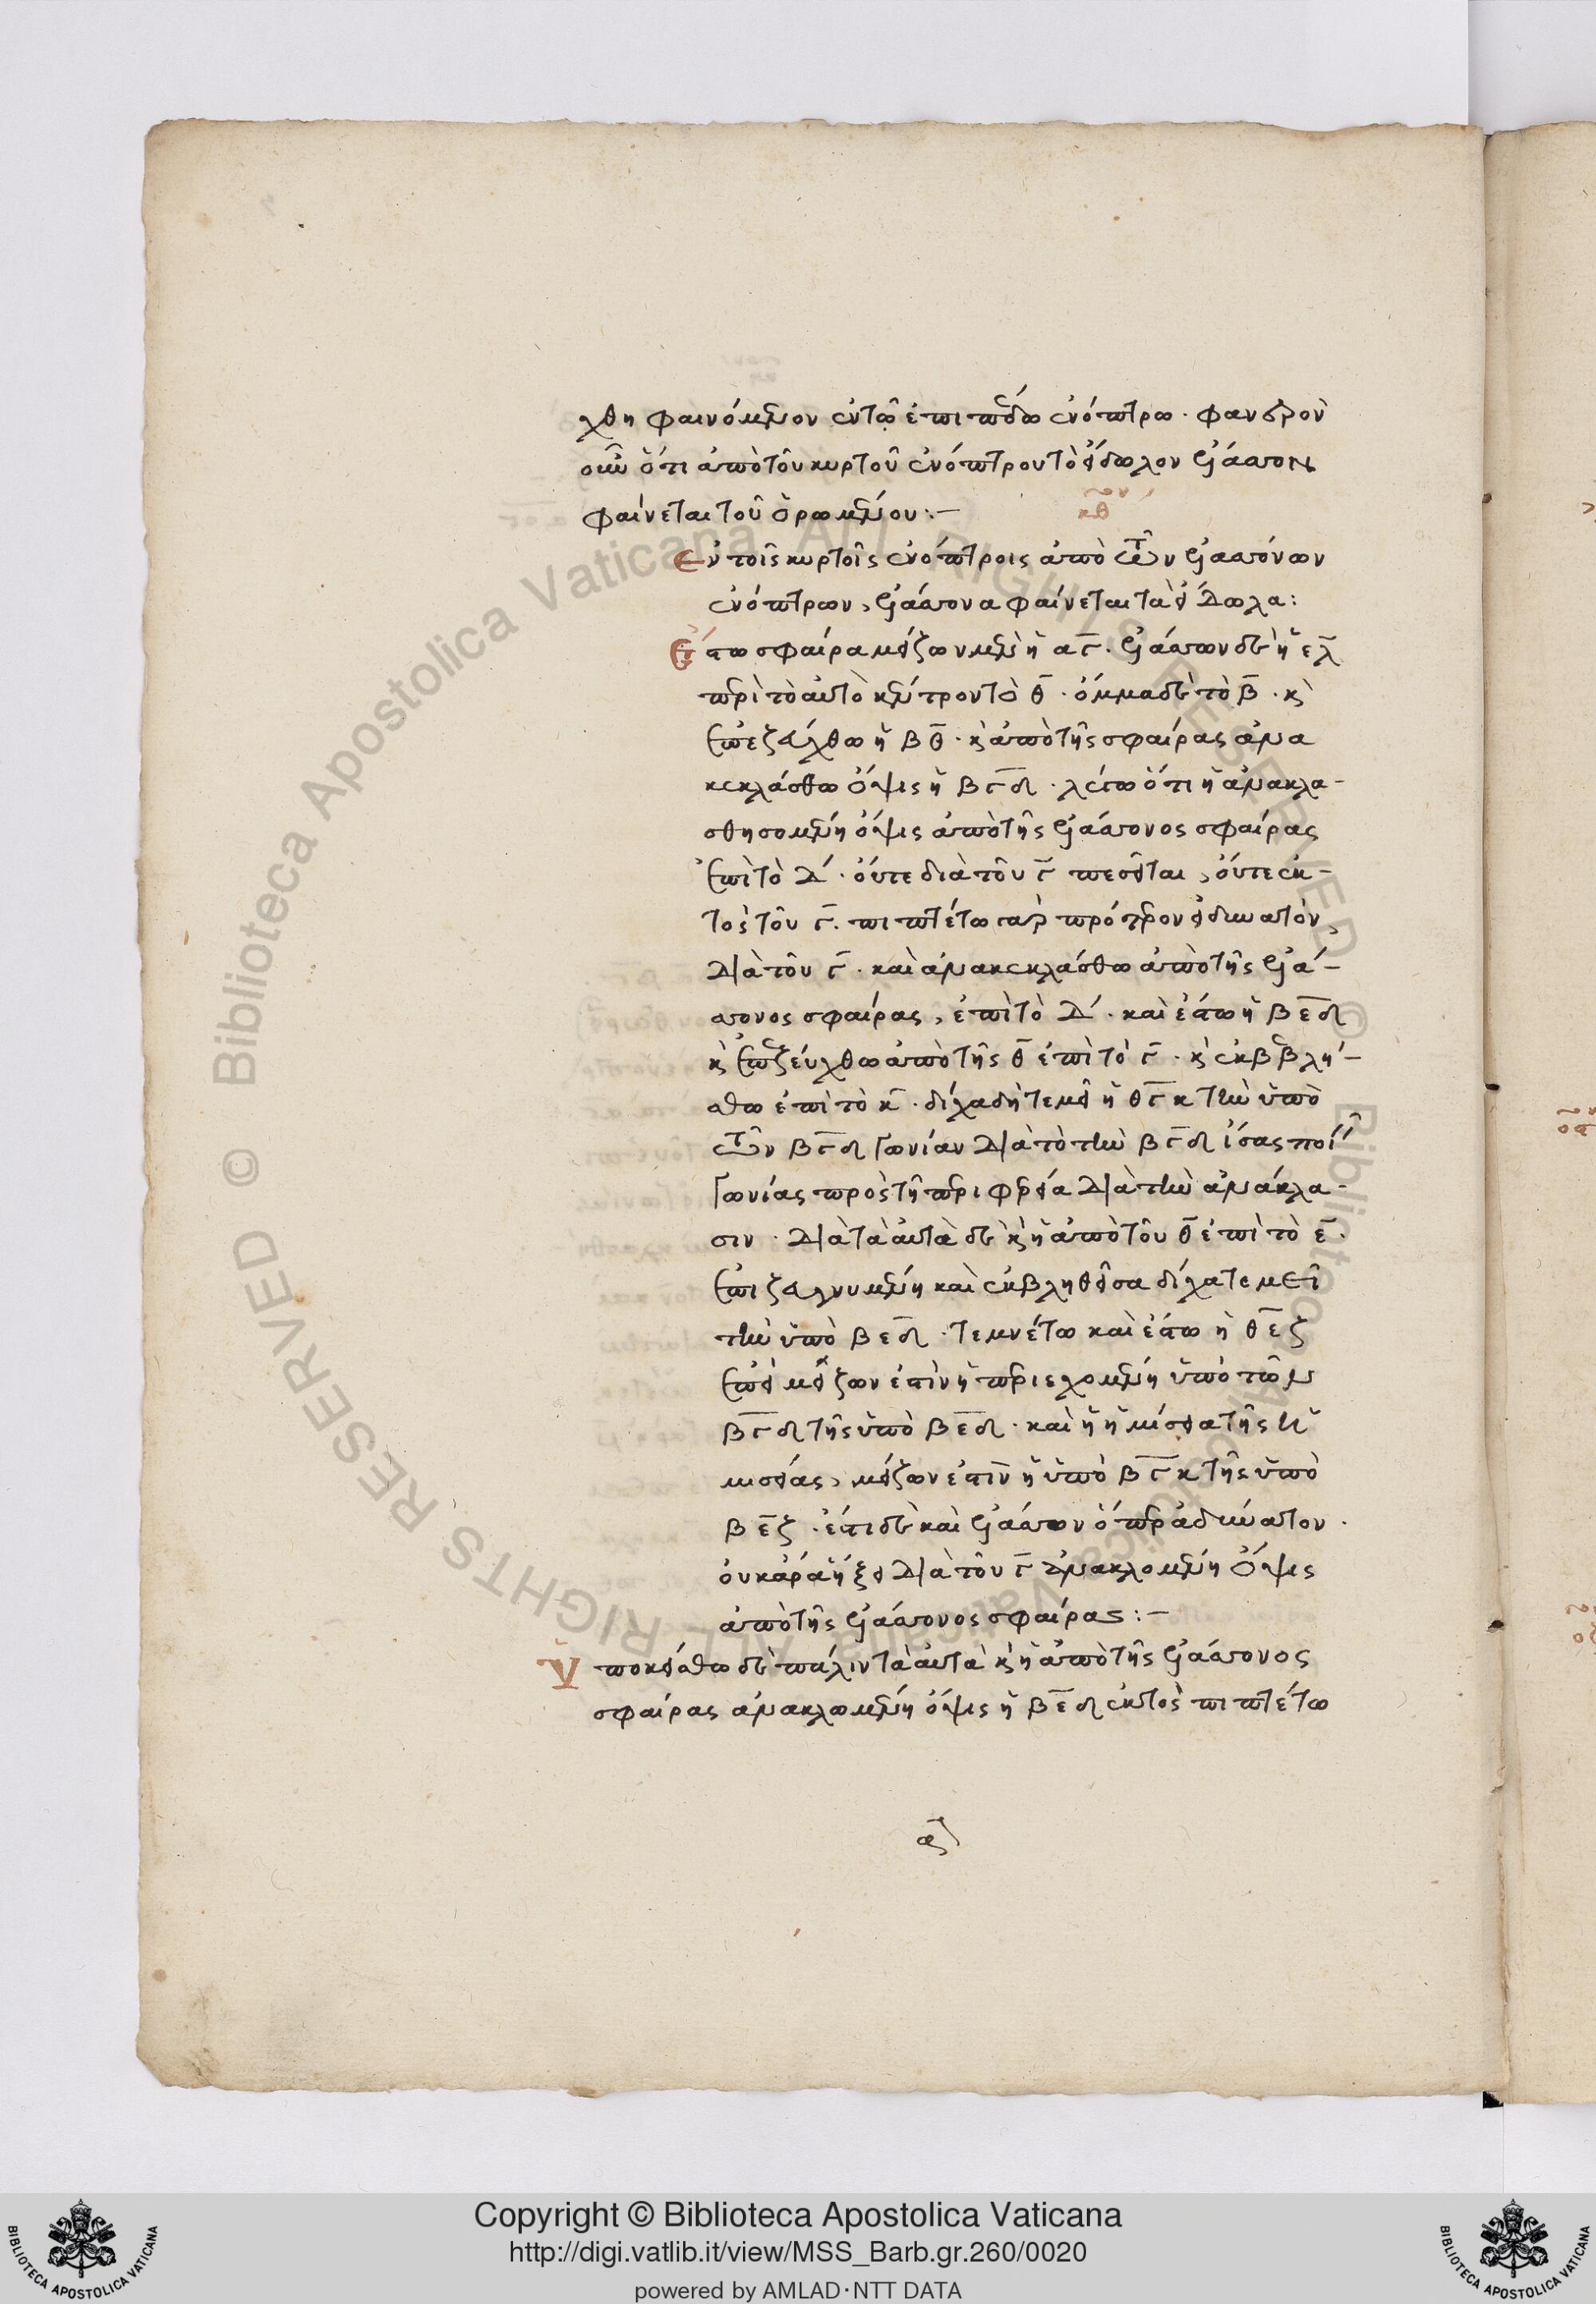 χθη φαινόμενον ἐν τῶ ἐπιπέδω ἐνόπτρω · φανερὸν
οὖν ὅτι ἀπὸ τοῦ κυρτοῦ ἐνόπτρου τὸ εἴδωλον ἔλαττον
φαίνεται τοῦ ὁρωμένου :-
κθον
Ἐν τοῖς κυρτοῖς ἐνόπτροις ἀπὸ τῶν ἐλαττόνων
ἐνόπτρων, ἐλάττονα φαίνεται τὰ εἴδωλα :
Ἔστω σφαίρα μείζων μὲν ἡ α̅γ̅ · ἐλάττων δὲ ἡ ε̅λ̅
περὶ τὸ αὐτὸ κέντρον τὸ θ̅ · ὄμμα δὲ τὸ β̅ · κὶ
ἐπεζεύχθω ἡ β̅θ̅ · κὶ ἀπὸ τῆς σφαίρας ἀνα
κεκλάσθω ὄψις ἡ β̅γ̅δ̅ · λέγω ὅτι ἡ ἀνακλα-
σθησομένη ὄψις ἀπὸ τῆς ἐλάττονος σφαίρας
ἐπὶ τὸ δ̅ · οὔτε διὰ τοῦ γ̅ πεσεῖται, οὔτε ἐκ-
τὸς τοῦ γ̅ · πιπτέτω γὰρ πρότερον εἰ δυνατὸν,
διὰ τοῦ γ̅ · καὶ ἀνακεκλάσθω ἀπὸ τῆς ἐλά-
ττονος σφαίρας, ἐπὶ τὸ δ̅ · καὶ ἔστω ἡ β̅ε̅δ̅
κὶ ἐπεζεύχθω ἀπὸ τῆς θ̅ ἐπὶ τὸ γ̅ · κὶ ἐκβεβλή-
σθω ἐπὶ τὸ κ̅ · δίχα δὴ τεμεῖ ἡ θ̅γ̅κ̅ τὴν ὑπὸ
τῶν β̅γ̅δ̅ γωνίαν διὰ τὸ τὴν β̅γ̅δ̅ ἴσας ποιεῖ
γωνίας πρὸς τῆ περιφερεία διὰ τὴν ἀνάκλα-
σιν · διὰ τὰ αὐτὰ δὲ κὶ ἡ ἀπὸ τοῦ θ̅ ἐπὶ τὸ ε̅ ·
ἐπιζευγνυμένη καὶ ἐκβληθεῖσα δίχα τεμεῖ
τὴν ὑπὸ β̅ε̅δ̅ · τεμνέτω καὶ ἔστω ἡ θ̅ε̅ζ̅
ἐπεὶ μείζων ἐστὶν ἡ περιεχομένη ὑπὸ τῶν
β̅γ̅δ̅ τῆς ὑπὸ β̅ε̅δ̅ · καὶ ἡ ἡμίσεια τῆς ἡ
μισείας, μείζων ἐστὶν ἡ ὑπὸ β̅γ̅κ̅ τῆς ὑπὸ
β̅ε̅ζ̅ · ἔστι δὲ καὶ ἔλαττον ὅπερ ἀδύνατον ·
οὐκ ἄρα ἥξει διὰ τοῦ γ̅ ἀνακλομένη ὄψις
ἀπὸ τῆς ἐλάττονος σφαίρας :-
Ὑποκείσθω δὲ πάλιν τὰ αὐτὰ κὶ ἡ ἀπὸ τῆς ἐλάττονος
σφαίρας ἀνακλωμένη ὄψις ἡ β̅ε̅δ̅ ἐκτὸς πιπτέτω
Copyright © Biblioteca Apostolica Vaticana
http://digi.vatlib.it/view/MSS_Barb.gr.260/0020
powered by AMLAD·NTT DATA
BIBLIOTECA APOSTOLICA VATICANA
BIBLIOTECA APOSTOLICA VATICANA
© Biblioteca Apostolica Vaticana ALL RIGHTS RESERVED
© Biblioteca Apostolica Vaticana ALL RIGHTS RESERVED